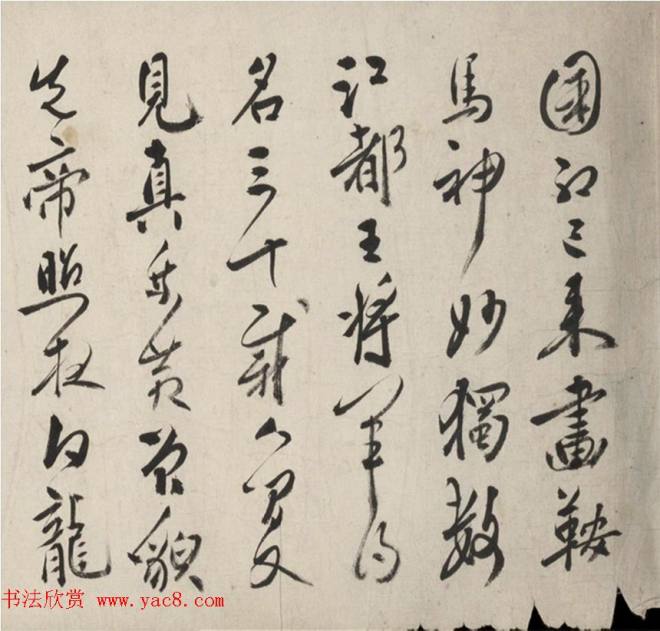 國初已來畫鞍
馬神妙獨數
江都王將軍得
名三十載人間又
見真乘黃曾貌
先帝照夜白龍
书法欣赏 www.yac8.com